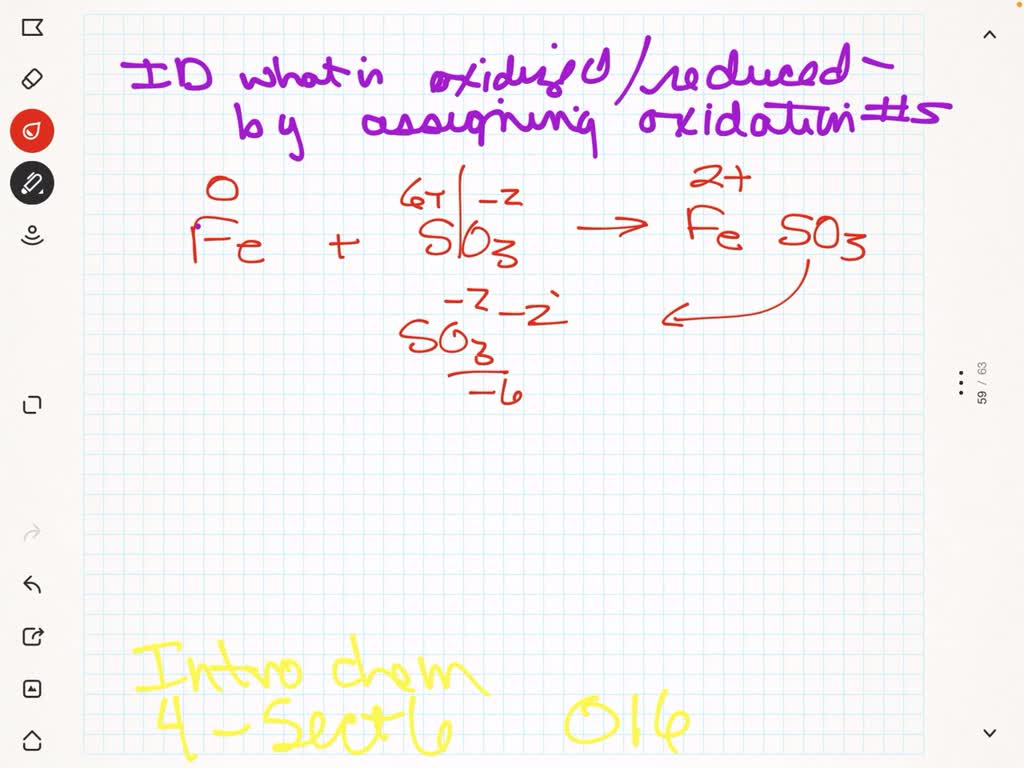 ID what is oxidized/reduced -
by assigning oxidation #s
0 6+ -2 2+
Fe + SO3 → Fe SO3
-2 -2
SO3
-6
59 / 63
Intro chem
4 - Sect 6 016